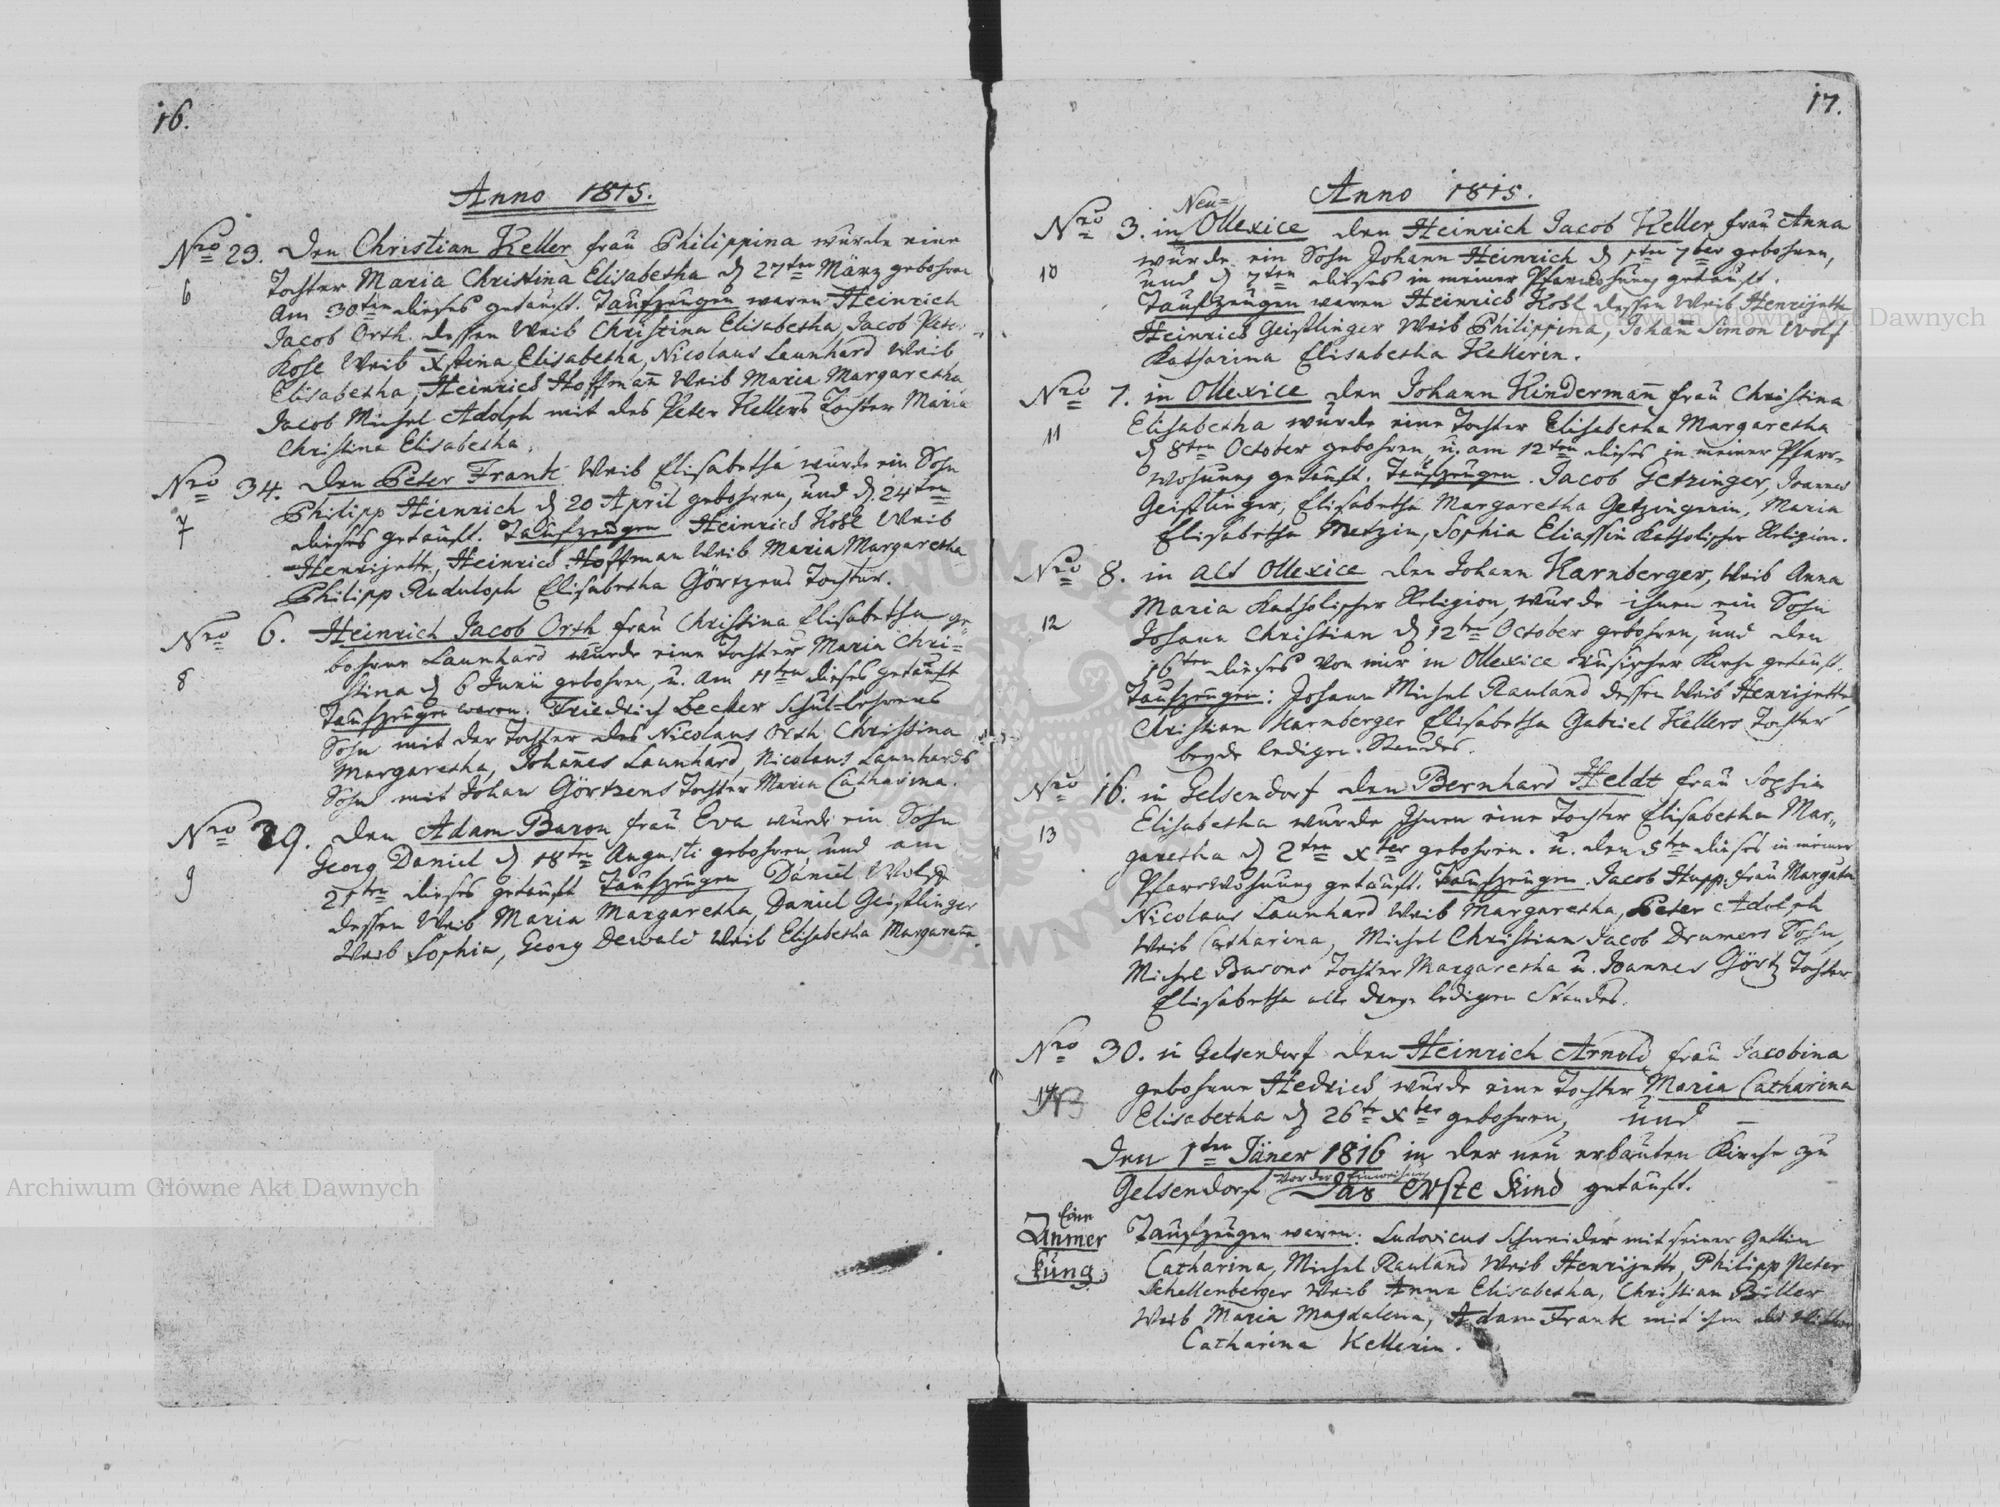 16.
Anno 1815.
Nro 23. Den Christian Keller frau Philippina wurde eine
6 Tochter Maria Christina Elisabetha d 27ten März gebohren
Am 30ten dieses getauft. Taufzeugen waren Heinrich
Jacob Orth dessen Weib Christina Elisabetha, Jacob Peter
Kohl Weib Xstina Elisabetha, Nicolaus Launhard Weib
Elisabetha, Heinrich Hoffmañ Weib Maria Margaretha
Jacob Michel Adolph mit des Peter Kellers Tochter Maria
Christina Elisabetha.
Nro 34. Den Peter Frank Weib Elisabetha wurde ein Sohn
7 Philipp Heinrich d 20 April gebohren, und d. 24ten
dieses getauft. Taufzeugen Heinrich Kohl Weib
Henrijette, Heinrich Hoffman Weib Maria Margaretha
Philipp Ruduloph Elisabetha Görtzens Tochter.
Nro 6. Heinrich Jacob Orth frau Christina Elisabetha ge=
8 bohrne Launhard wurde eine Tochter Maria Chri=
stina d 6 Junii gebohren, u. am 11ten dieses getauft
Taufzeugen waren: Friedrich Becker Schul-Lehrers
Sohn mit der Tochter des Nicolaus Orth Christina
Margaretha, Johañes Launhard, Nicolaus Launhards
Sohn mit Johan Görtzens Tochter Maria Catharina.
Nro 29. Den Adam Baron frau Eva wurde ein Sohn
9 Georg Daniel d 18ten Augusti gebohren und am
21ten dieses getauft Taufzeugen Daniel Wolf
dessen Weib Maria Margaretha, Daniel Geistlinger
Weib Sophia, Georg Dewald Weib Elisabetha Margaretha.
17.
Anno 1815.
Neu=
Nro 3. in Ollexice den Heinrich Jacob Keller frau Anna
10 wurde ein Sohn Johann Heinrich d 1ten 7ber gebohren,
und d 7ten dieses in meiner Pfarrwohnung getauft.
Taufzeugen waren Heinrich Kohl dessen Weib Henrijette
Heinrich Geistlinger Weib Philippina, Johañ Simon Wolf
Katharina Elisabetha Kellerin.
Nro 7. in Ollexice den Johann Kindermañ frau Christina
11 Elisabetha wurde eine Tochter Elisabetha Margaretha
d 8ten October gebohren, u. am 12ten dieses in meiner Pfarr=
wohnung getauft. Taufzeugen. Jacob Getzinger, Joannes
Geistlinger, Elisabetha Margaretha Getzingerin, Maria
Elisabetha Metzin, Sophia Eliassin Katholischer Religion.
Nro 8. in alt Ollexice den Johann Karnberger, Weib Anna
12 Maria Katholischer Religion, wurde ihnen ein Sohn
Johann Christian d 12ten October gebohren, und den
16ten dieses von mir in Ollexice rusischer Kirche getauft.
Taufzeugen: Johann Michel Rauland dessen Weib Henrijette,
Christian Karnberger Elisabetha Gabriel Kellers Tochter
beyde ledigen Standes.
Nro 16. in Gelsendorf den Bernhard Heldt frau Sophia
13 Elisabetha wurde Ihnen eine Tochter Elisabetha Mar=
garetha d 2ten Xber gebohren. u. den 5ten dieses in meiner
Pfarrwohnung getauft. Taufzeugen. Jacob Hupp. frau Margaretha
Nicolaus Launhard Weib Margaretha, Peter Adolph
Weib Catharina, Michel Christian Jacob Drumers Sohn,
Michel Barons Tochter Margaretha u. Joannes Görtz Tochter
Elisabetha alle drey ledigen Standes.
Nro 30. in Gelsendorf den Heinrich Arnold frau Jacobina
14 gebohrne Hedrich wurde eine Tochter Maria Catharina
Elisabetha d 26te Xber gebohren, und
Den 1ten Jäner 1816 in der neu erbauten Kirche zu
vor der Einweihung
Gelsendorf Das erste Kind getauft.
Eine Anmerkung. Taufzeugen waren: Ludovicus Schneider mit seiner Gattin
Catharina, Michel Rauland Weib Henrijette, Philipp Peter
Schellenberger Weib Anna Elisabetha, Christian Biller
Weib Maria Magdalena, Adam Frank mit ihm
Catharina Kellerin.
Archiwum Główne Akt Dawnych
Archiwum Główne Akt Dawnych